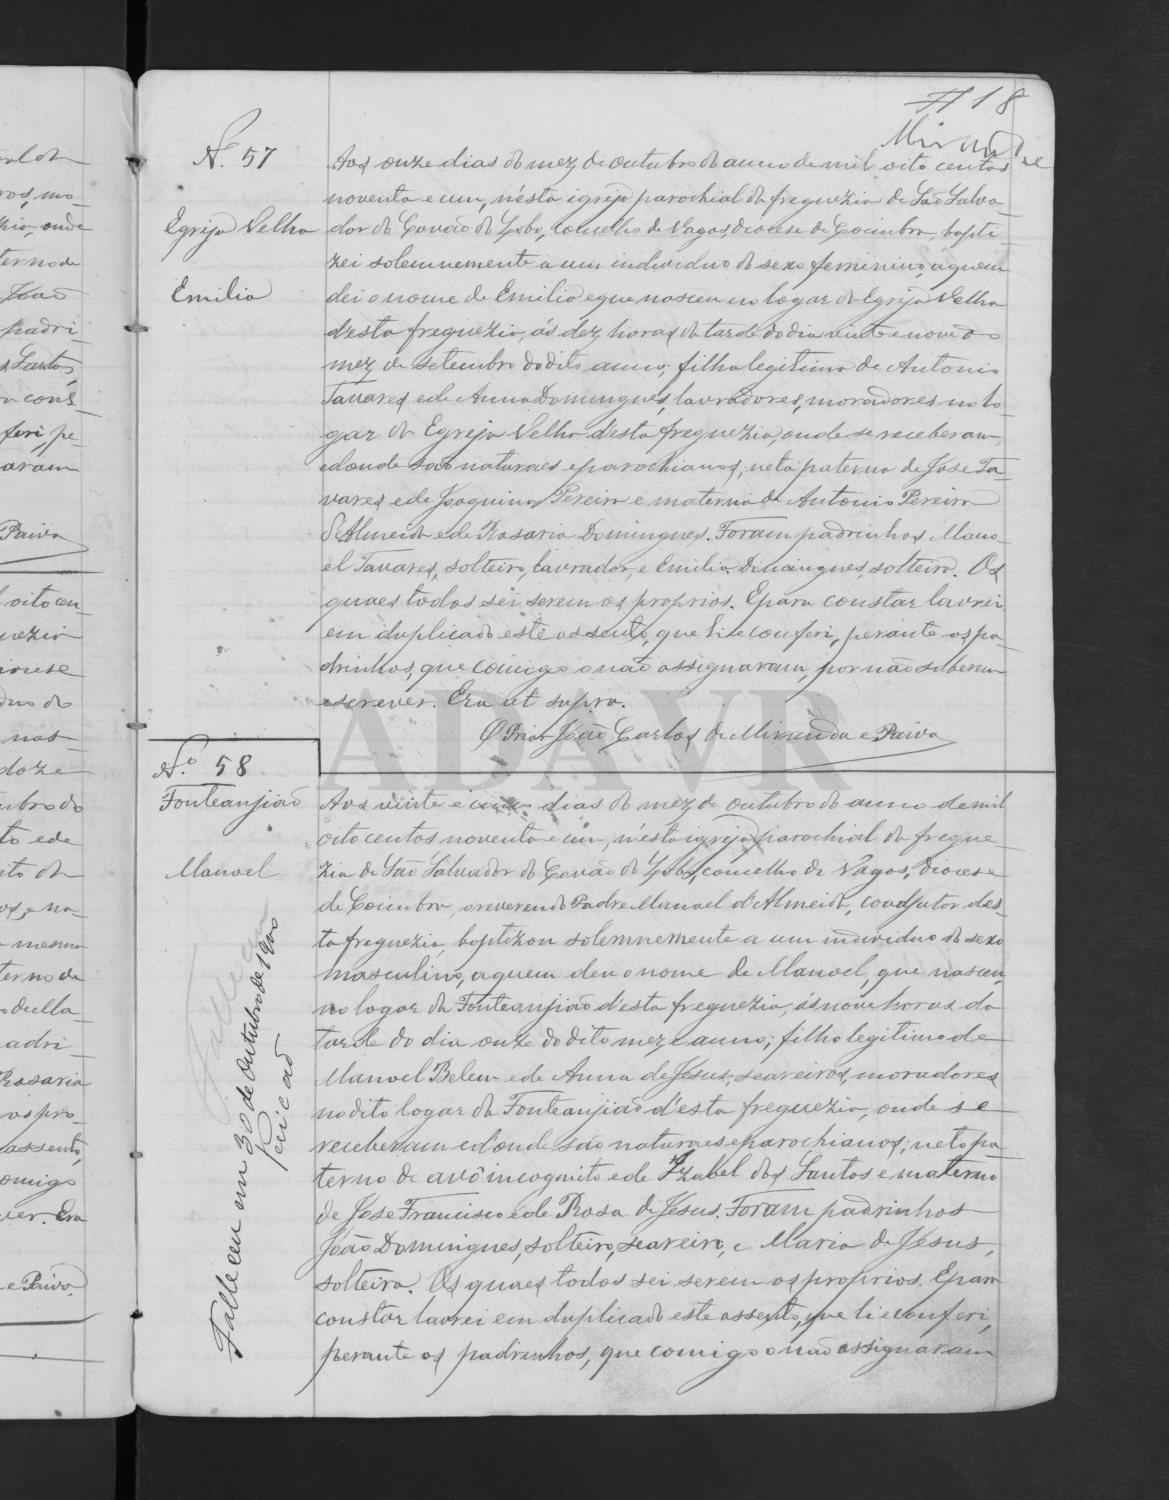 18
Miranda
N.º 57
Egreja Velha
Emilia
Aos onze dias do mez de outubro do anno de mil oito centos
noventa e um, n'ésta igreja parochial da freguezia de São Salva-
dor do Covão do Lobo, concelho de Vagos, diocese de Coimbra, bapti-
zei solemnemente a um individuo do sexo feminino, a quem
dei o nome de Emilia e que nasceu no logar da Egreja Velha
d'esta freguezia, ás déz horas da tarde do dia vinte e nove do
mez de setembro do dito anno; filha legitima de Antonio
Tavares e de Anna Domingues, lavradores, moradores no lo-
gar da Egreja Velha d'esta freguezia, onde se receberam,
e donde são naturaes e parochianos; neta paterna de José Ta-
vares e de Joaquina Pereira e materna de Antonio Pereira
d'Almeida e de Rosaria Domingues. Foram padrinhos Mano-
el Tavares, solteiro, lavrador, e Emilia Domingues, solteira. Os
quaes todos sei serem os proprios. E para constar lavrei
em duplicado este assento, que li e conferi, perante os pa-
drinhos, que comigo o não assignaram, por não saberem
escrever. Era ut supra.
O Prior João Carlos de Miranda e Paiva
N.º 58
Fonteanjião
Manoel
Falleceu em 30 de Outubro de 1900
Aos vinte e cinco dias do mez de outubro do anno de mil
oito centos noventa e um, n'ésta igreja parochial da fregue-
zia de São Salvador do Covão do Lobo, concelho de Vagos, diocese
de Coimbra, o reverendo Padre Manoel d'Almeida, coadjutor des-
ta freguezia, baptizou solemnemente a um individuo do sexo
masculino, a quem deu o nome de Manoel, que nasceu
no logar da Fonteanjião d'esta freguezia, ás nove horas da
tarde do dia onze do dito mez e anno; filho legitimo de
Manoel Belem e de Anna de Jesus; seareiros, moradores
no dito logar da Fonteanjião d'esta freguezia, onde se
receberam e d'onde são naturaes e parochianos; neto pa-
terno de avô incognito e de Izabel dos Santos e materno
de José Francisco e de Rosa de Jesus. Foram padrinhos
João Domingues, solteiro, seareiro, e Maria de Jesus,
solteira. Os quaes todos sei serem os proprios. E para
constar lavrei em duplicado este assento, que li e conferi,
perante os padrinhos, que comigo o não assignaram
ADAVR